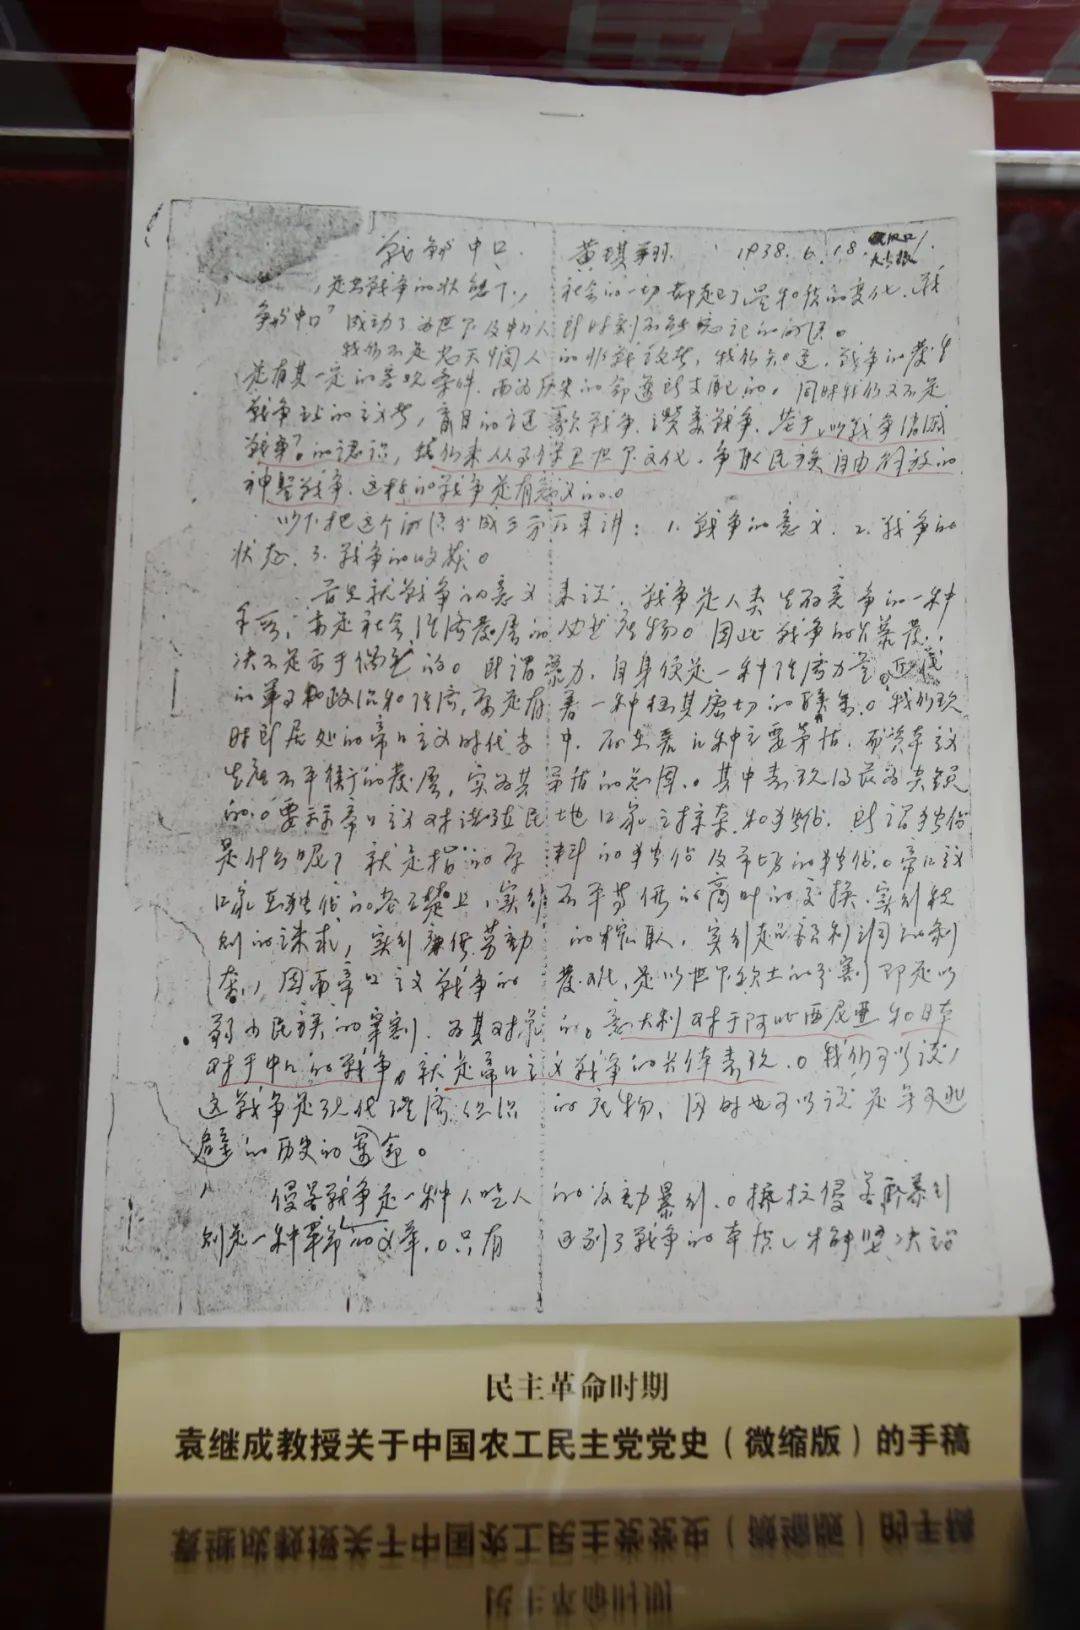 战争中口 黄琪翔 1938.6.18. 汉口大公报
，是当战争的状态下，社会的一切都起了量和质的变化，战
争中口 成功了
我们不是悲天悯人的非战论者，我们知道，战争的发生
是有其一定的客观条件，而为历史的命运所支配的。同时我们又不是
战争至上的主义者，盲目的讴歌战争、赞美战争，基于以战争消灭
战争的认识，我们来从事保卫世界文化、争取民族自由解放的
神圣战争，这样的战争是有意义的。
以下把这个问题分成三方面来讲：1.战争的意义，2.战争的
状态，3.战争的收获。
首先就战争的意义来说，战争是人类生存竞争的一种
手段，亦是社会经济发展的必然产物。因此战争的爆发，
决不是出于偶然的。所谓暴力，自身便是一种经济力量。近代
的军事和政治和经济，都是有着一种极其密切的联系。我们现
时所居处的帝口主义时代当中，存在着几种主要矛盾，而资本主义
生产不平衡的发展，实为其矛盾的总因。其中表现得最为尖锐
的。要算帝口主义对殖民地口家之掠夺和独占，所谓独占
是什么呢？就是指的原料的独占及市场的独占。帝口主义
口家在独占的基础上，实行不平等价的商品的交换，实行税
则的诛求，实行廉价劳动的榨取，实行超额利润的剥
夺，因而帝口主义战争的发动，是以世界领土的分割即是以
弱小民族的宰割，为其对象的。意大利对于阿比西尼亚和日本
对于中口的战争，就是帝口主义战争的具体表现。我们可以说，
这战争是现代经济组织的产物，同时也可以说是无可逃
避的历史的运命。
侵略战争是一种人吃人的反动暴行。抵抗侵略暴行
则是一种革命的义举。只有区别了战争的本质，才能坚决
民主革命时期
袁继成教授关于中国农工民主党党史（微缩版）的手稿